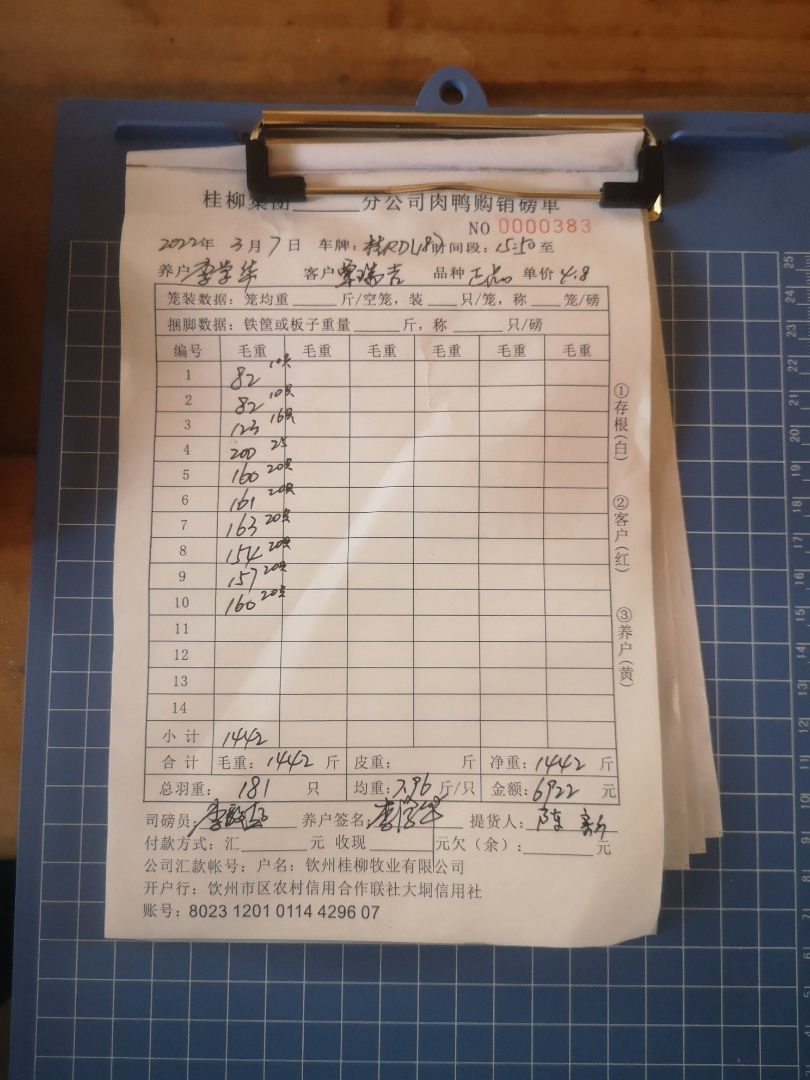 桂柳集团______分公司肉鸭购销磅单
NO 0000383
2022年 3月7日 车牌: 时间段:15:50至
养户 李学华 客户 覃瑞吉 品种 正品 单价 4.8
笼装数据:笼均重______斤/空笼,装____只/笼,称____笼/磅
捆脚数据:铁筐或板子重量______斤,称______只/磅
编号 毛重 毛重 毛重 毛重 毛重 毛重
1 82 10只
2 82 10只
3 123 16只
4 200 25
5 160 20只
6 161 20只
7 163 20只
8 154 20只
9 157 20只
10 160 20只
11
12
13
14
小计 1442
合计 毛重:1442斤 皮重: 斤 净重:1442斤
总羽重:181只 均重:7.96斤/只 金额:6922元
司磅员: 养户签名:李学华 提货人:
付款方式:汇______元 收现______元欠(余):______元
公司汇款帐号:户名:钦州桂柳牧业有限公司
开户行:钦州市区农村信用合作联社大垌信用社
账号:8023 1201 0114 4296 07
①存根(白)
②客户(红)
③养户(黄)
25
24
23
22
21
20
19
18
17
16
15
14
13
12
11
10
9
8
7
6
5
4